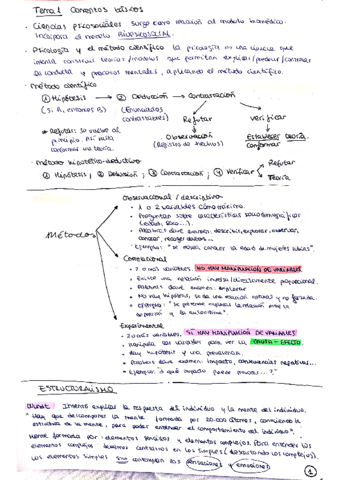 Tema 1 Conceptos básicos
· Ciencias psicosociales surge como reacción al modelo biomédico.
Incorpora el modelo BIOPSICOSOCIAL
· Psicología y el método científico la psicología es una ciencia que
intenta construir teorías/modelos que permitan explicar/predecir/controlar
la conducta y procesos mentales, aplicando el método científico.
· Método científico
① Hipótesis → ② Deducción → Contrastación
(Si A, entonces B) (Enunciados contrastables)
Refutar Verificar
* Refutar: se vuelve al
principio. Así hasta
conformar una teoría.
Observación
(Registro de hechos)
Establecer teoría.
Conformar
· Método hipotético-deductivo
① Hipótesis, ② Deducción, ③ Contrastación, ④ Verificar
Refutar
Teoría
Métodos
Observacional / descriptivo
- 1 o 2 variables como máximo.
- Preguntan sobre características sociodemográficas
(edad, sexo...).
- Palabras clave examen: describir, explorar, observar,
conocer, recoger datos...
- Ejemplo:
Correlacional
- 2 o más variables. NO HAY MANIPULACIÓN DE VARIABLES
- Existe una relación inversa/directamente proporcional.
- Palabras clave examen:
- No hay hipótesis, se da una relación natural y no forzada.
- Ejemplo: "Se pretende explorar la relación entre la
depresión y la autoestima".
Experimental
- 2 o más variables. SÍ HAY MANIPULACIÓN DE VARIABLES
- Manipula las variables para ver la CAUSA-EFECTO.
- Hay hipótesis y una
- Palabras clave examen: impacto, consecuencias negativas...
- Ejemplo: "¿Qué impacto puede provocar...?"
ESTRUCTURALISMO
Wundt: Intentó explicar la respuesta del individuo y la mente del individuo.
"Hay que descomponer la mente formada por átomos, conociendo la
estructura de la mente, para poder entender el comportamiento del individuo".
Mente formada por: elementos simples y elementos complejos. Para entender los
elementos complejos debemos centrarnos en los simples (descartando los complejos).
Los elementos simples que contemplan son sensaciones y emociones
1